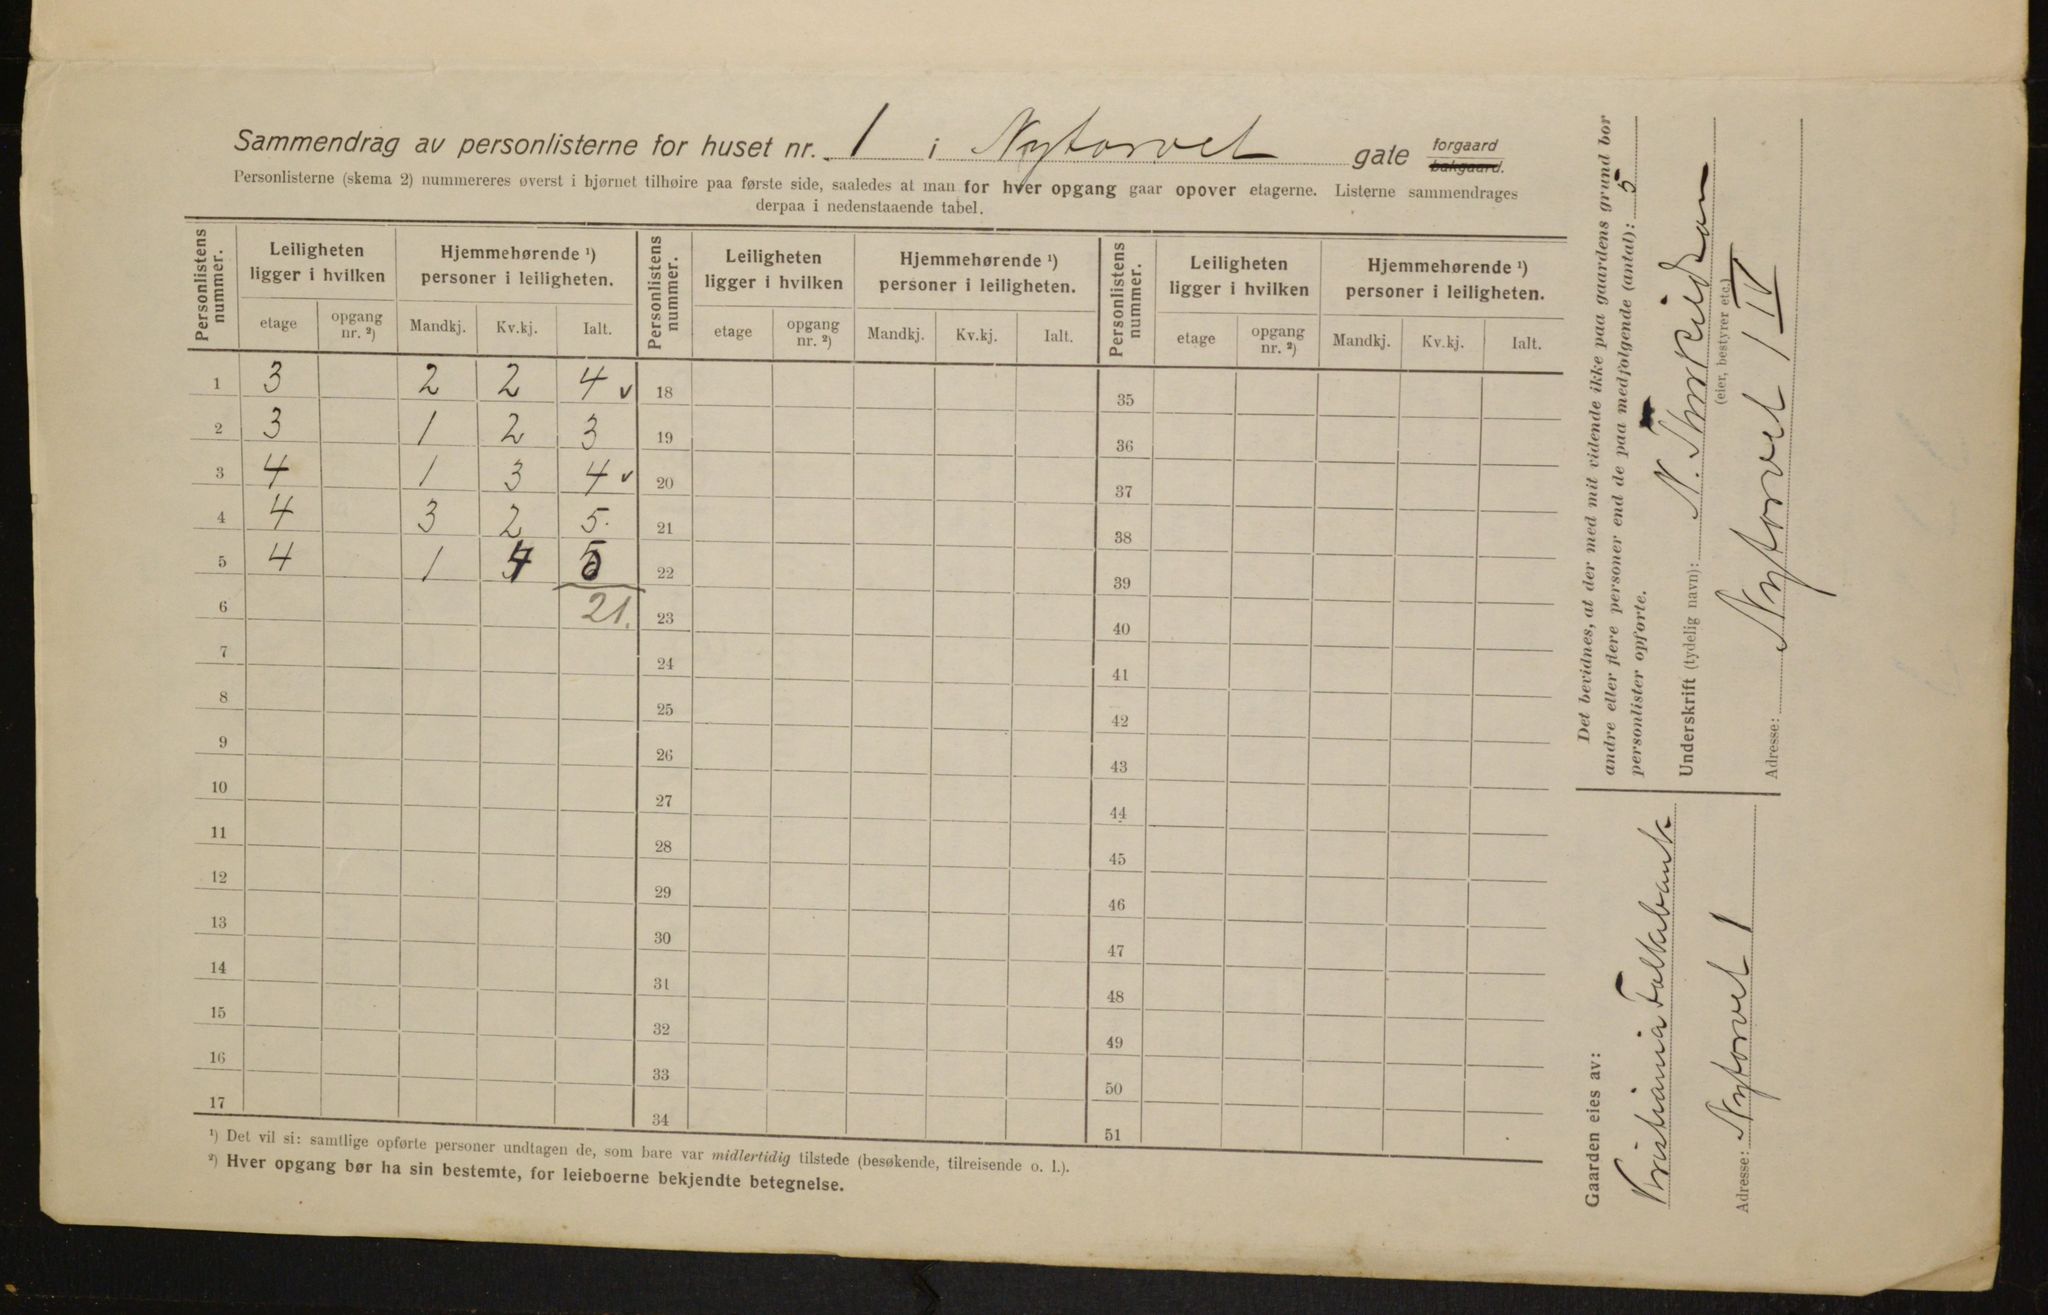 Sammendrag av personlisterne for huset nr. 1 i Nytorvet gate forgaard bakgaard.
Personlisterne (skema 2) nummereres øverst i hjørnet tilhøire paa første side, saaledes at man for hver opgang gaar opover etagerne. Listerne sammendrages
derpaa i nedenstaaende tabel.
Personlistens nummer. Leiligheten ligger i hvilken Hjemmehørende ¹) personer i leiligheten. Personlistens nummer. Leiligheten ligger i hvilken Hjemmehørende ¹) personer i leiligheten. Personlistens nummer. Leiligheten ligger i hvilken Hjemmehørende ¹) personer i leiligheten.
etage opgang nr. ²) Mandkj. Kv.kj. Ialt. etage opgang nr. ²) Mandkj. Kv.kj. Ialt. etage opgang nr. ²) Mandkj. Kv.kj. Ialt.
1 3 2 2 4 v 18 35
2 3 1 2 3 19 36
3 4 1 3 4 v 20 37
4 4 3 2 5. 21 38
5 4 1 4 5 22 39
6 21. 23 40
7 24 41
8 25 42
9 26 43
10 27 44
11 28 45
12 29 46
13 30 47
14 31 48
15 32 49
16 33 50
17 34 51
¹) Det vil si: samtlige opførte personer undtagen de, som bare var midlertidig tilstede (besøkende, tilreisende o. l.).
²) Hver opgang bør ha sin bestemte, for leieboerne bekjendte betegnelse.
Det bevidnes, at der med mit vidende ikke paa gaardens grund bor
andre eller flere personer end de paa medfølgende (antal): 5
personlister opførte.
Underskrift (tydelig navn): N. Thorkildson
(eier, bestyrer etc.)
Adresse: Nytorvet 1 IV
Gaarden eies av:
Kristiania Folkebank
Adresse: Nytorvet 1